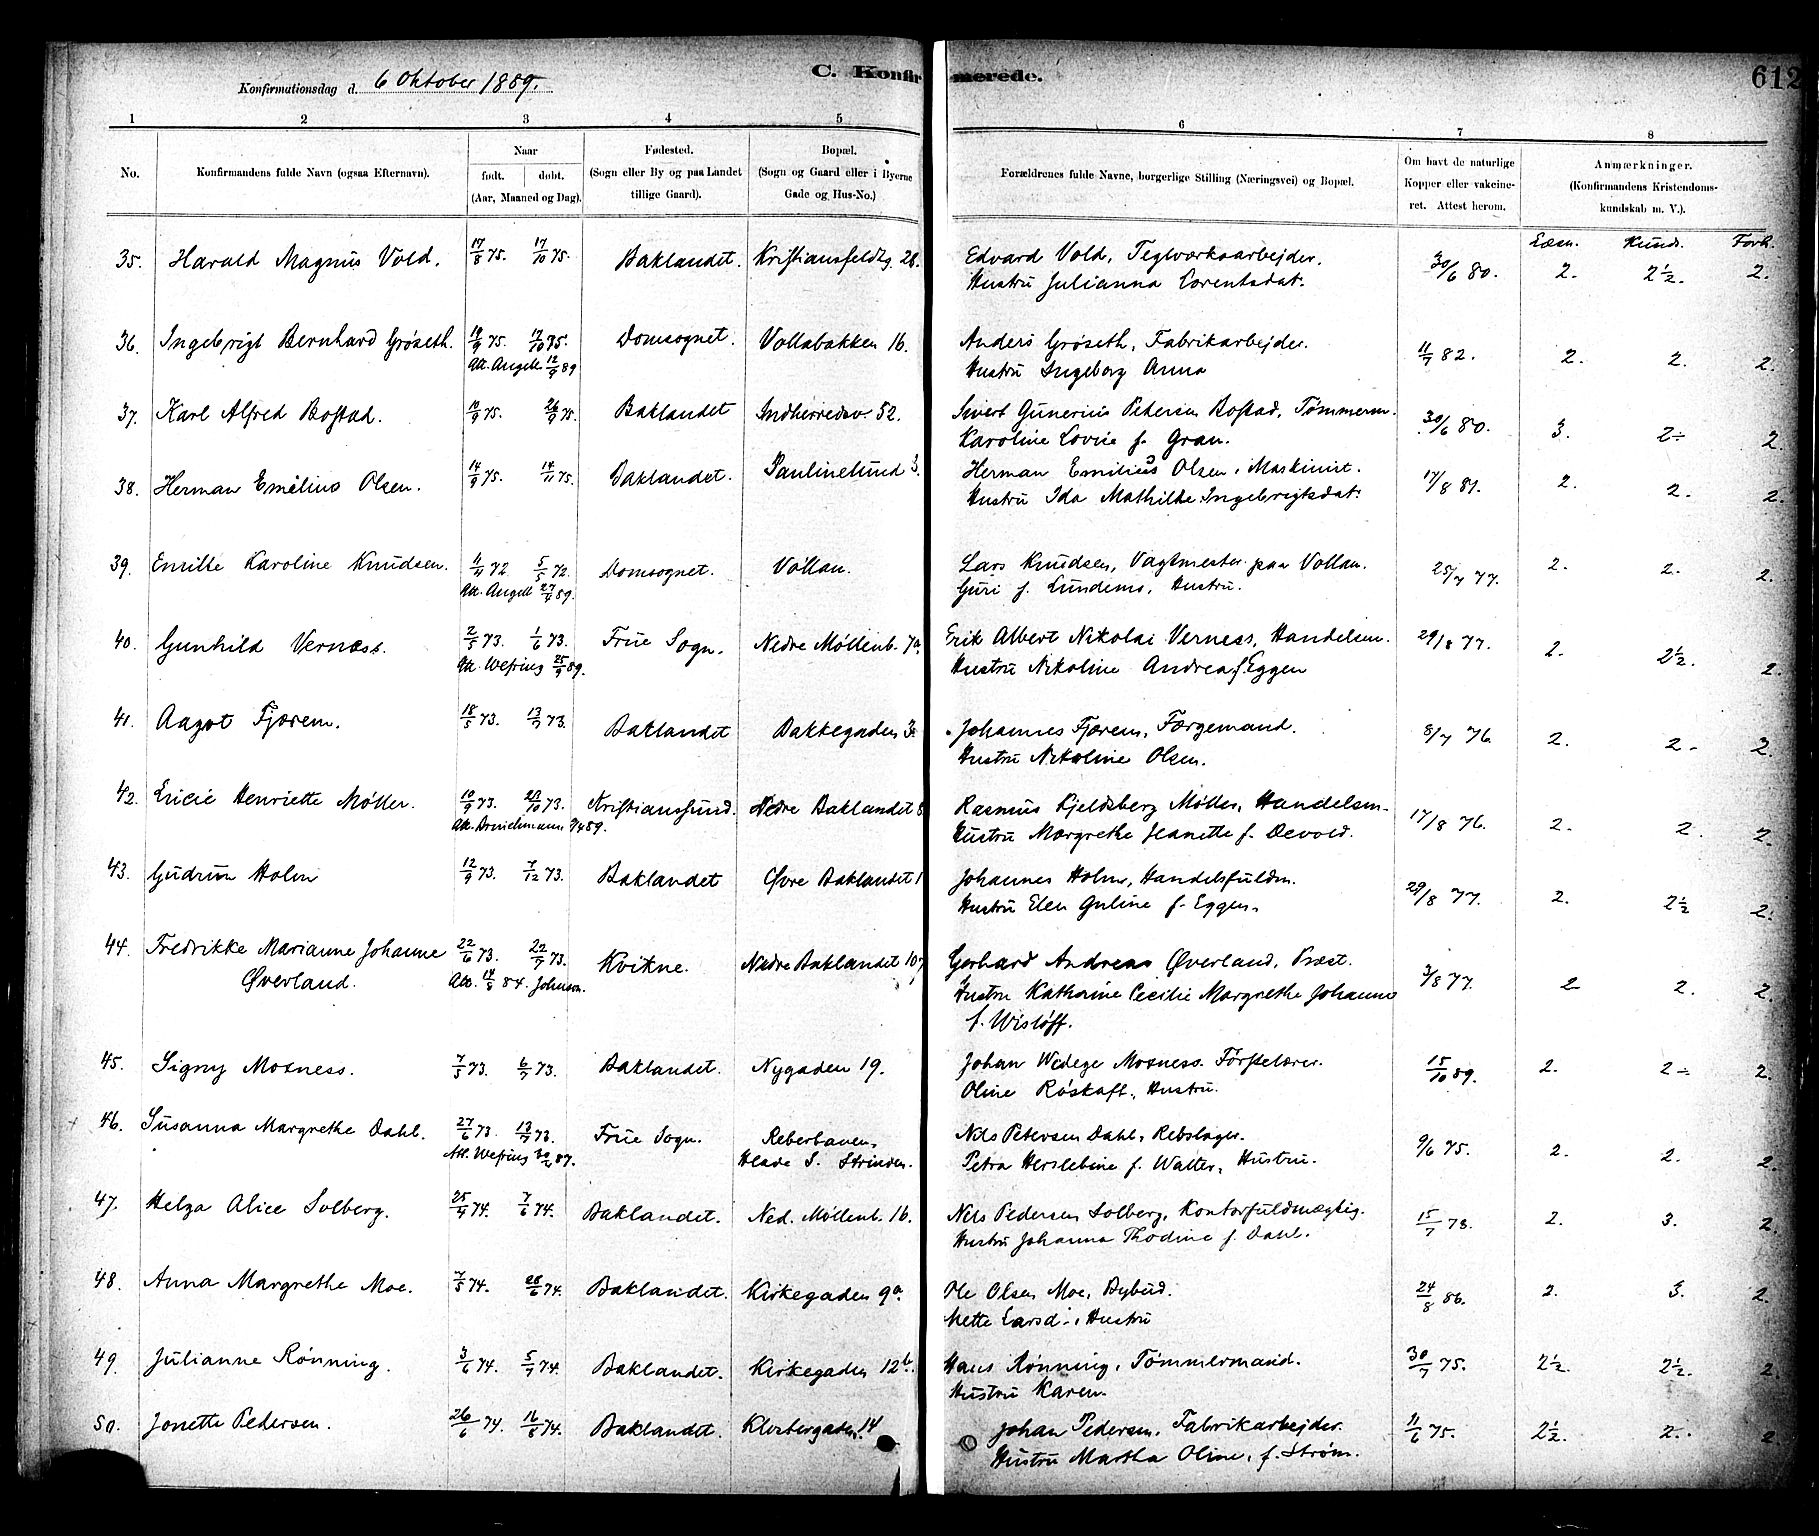 C. Konfirmerede.
612
Konfirmationsdag d. 6 Oktober 1889.
1 2 3 4 5 6 7 8
No.
Konfirmandens fulde Navn (ogsaa Efternavn).
Naar
født. døbt.
(Aar, Maaned og Dag).
Fødested.
(Sogn eller By og paa Landet
tillige Gaard).
Bopæl.
(Sogn og Gaard eller i Byerne
Gade og Hus-No.)
Forældrenes fulde Navne, borgerlige Stilling (Næringsvei) og Bopæl.
Om havt de naturlige
Kopper eller vakcine-
ret. Attest herom.
Anmærkninger.
(Konfirmandens Kristendoms-
kundskab m. V.).
Læsn. Kunds. Forh.
35. Harald Magnus Vold. 17/8 75. 17/10 75. Baklandet. Kristiansfeldtg. 28. Edvard Vold, Teglværksarbejder. 30/6 80. 2. 2½. 2.
Hustru Julianna Lorentsdat.
36. Ingebrigt Bernhard Grøseth. 19/9 75. 17/10 75. Domsognet. Vollabakken 16. Anders Grøseth, Fabrikarbejder. 11/7 82. 2. 2. 2.
Att. Angell 12/9 89 Hustru Ingeborg Anna
37. Karl Alfred Bostad. 10/9 75. 26/9 75. Baklandet Indherredsv. 52. Sivert Gunerius Petersen Bostad, Tømmerm. 30/6 80. 3. 2÷ 2.
Karoline Lovise f. Gran.
38. Herman Emilius Olsen. 14/9 75. 14/11 75. Baklandet. Paulinelund 3. Herman Emilius Olsen, Maskinist. 17/8 81. 2. 2. 2.
Hustru Ida Mathilde Ingebrigtsdat.
39. Emilie Karoline Knudsen. 11/4 72 5/5 72. Domsognet. Vollan. Lars Knudsen, Vagtmester paa Vollan. 25/7 77. 2. 2. 2.
Att. Angell 27/9 89. Guri f. Lundemo, Hustru.
40. Gunhild Verness. 2/5 73. 1/6 73. Frue Sogn. Nedre Møllenb. 7a. Erik Albert Nikolai Verness, Handelsm. 29/8 77. 2. 2½. 2.
Att. Wefring 25/9 89. Hustru Nikoline Andrea f. Eggen
41. Aagot Fjærem. 18/5 73. 13/7 73. Baklandet Bakkegaden 3. Johannes Fjærem, Færgemand. 8/7 76. 2. 2- 2.
Hustru Nikoline Olsen.
42. Ericie Henriette Møller. 10/9 73. 23/10 73. Kristianssund. Nedre Baklandet 8 Rasmus Kjeldsberg Møller, Handelsm. 17/8 76. 2. 2. 2.
Hustru Margrethe Jeanette f. Devold.
43. Gudrun Holm 12/9 73. 7/12 73. Baklandet Øvre Baklandet 1 Johannes Holm, Handelsfuldm. 29/8 77. 2. 2½ 2.
Hustru Elen Guline f. Eggen.
44. Fredrikke Marianne Johanne 22/6 73. 22/7 73. Kvikne. Nedre Baklandet 10 Gerhard Andreas Øverland, Præst. 3/8 77. 2 2. 2.
Øverland. Hustru Kathrine Cecilie Margrethe Johanne
f. Wisløff.
45. Signy Moxness. 7/5 73. 6/7 73. Baklandet. Nygaden 19. Johan Wedege Moxness. Førstelærer. 15/10 89. 2. 2÷ 2.
Oline Røskaft, Hustru.
46. Susanna Margrethe Dahl. 27/6 73. 13/7 73. Frue Sogn. Reberbanen, Nils Petersen Dahl, Rebslager. 9/6 75. 2. 2. 2.
Att. Wefring Hlade S. Strinden. Petra Herslebine f. Walter, Hustru.
47. Helga Alice Solberg. 25/4 74. 7/6 74. Baklandet. Ned. Møllenb. 16. Nils Pedersen Solberg, Kontorfuldmægtig. 15/7 78. 2. 3. 2.
Hustru Johanna Thodine f. Dahl.
48. Anna Margrethe Moe. 7/5 74. 28/6 74. Baklandet. Kirkegaden 9a. Ole Olsen Moe, Bybud. 24/8 86. 2. 3. 2.
Mette Larsd., Hustru
49. Julianne Rønning. 3/6 74. 5/7 74. Baklandet. Kirkegaden 12b. Hans Rønning, Tømmermand. 30/7 75. 2½. 2½. 2
Hustru Karen.
50. Jonette Pedersen. 26/6 74. 16/8 74. Baklandet. Klostergaden 14 Johan Pedersen, Fabrikarbejder. 11/6 75. 2½. 2. 2
Hustru Martha Oline, f. Strøm.